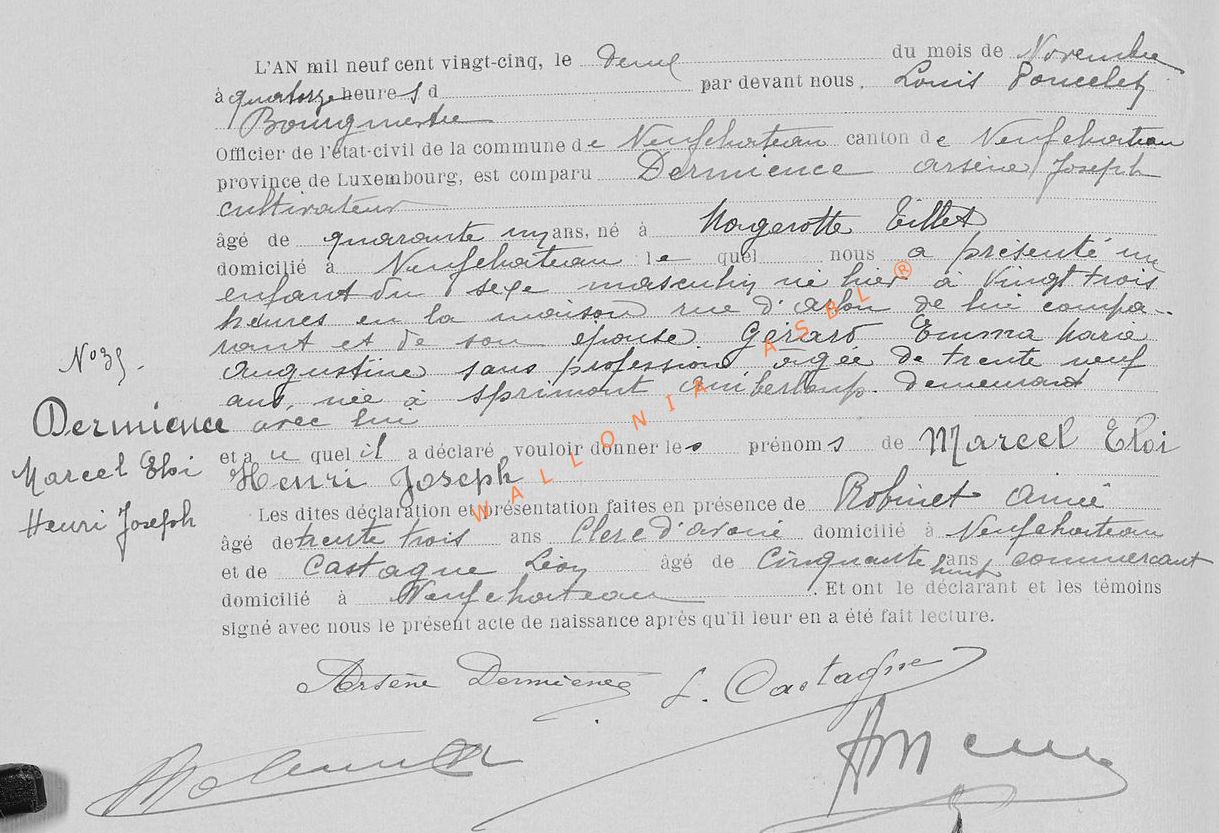 L'AN mil neuf cent vingt-cinq, le deux du mois de Novembre
à quatorze heure s d par devant nous, Louis Poncelet
Bourgmestre
Officier de l'état-civil de la commune de Neufchateau canton de Neufchateau
province de Luxembourg, est comparu Dermience Arsène Joseph
cultivateur
âgé de quarante un ans, né à Magerotte Tillet
domicilié à Neufchateau le quel nous a présenté un
enfant du sexe masculin né hier à vingt trois
heures en la maison rue d'Arlon de lui compa-
rant et de son épouse Gérard Emma
Augustine sans profession âgée de trente neuf
ans, née à Sprimont Amberloup. demeurant
avec lui
N° 35.
Dermience
Marcel Eloi
Henri Joseph
et a u quel il a déclaré vouloir donner les prénoms de Marcel Eloi
Henri Joseph
Les dites déclaration et présentation faites en présence de Robinet Aimé
âgé de trente trois ans Clerc d'avoué domicilié à Neufchateau
et de Castagne Léon âgé de Cinquante huit ans commercant
domicilié à Neufchateau. Et ont le déclarant et les témoins
signé avec nous le présent acte de naissance après qu'il leur en a été fait lecture.
Arsène Dermience L. Castagne
WALLONIA ASBL ®